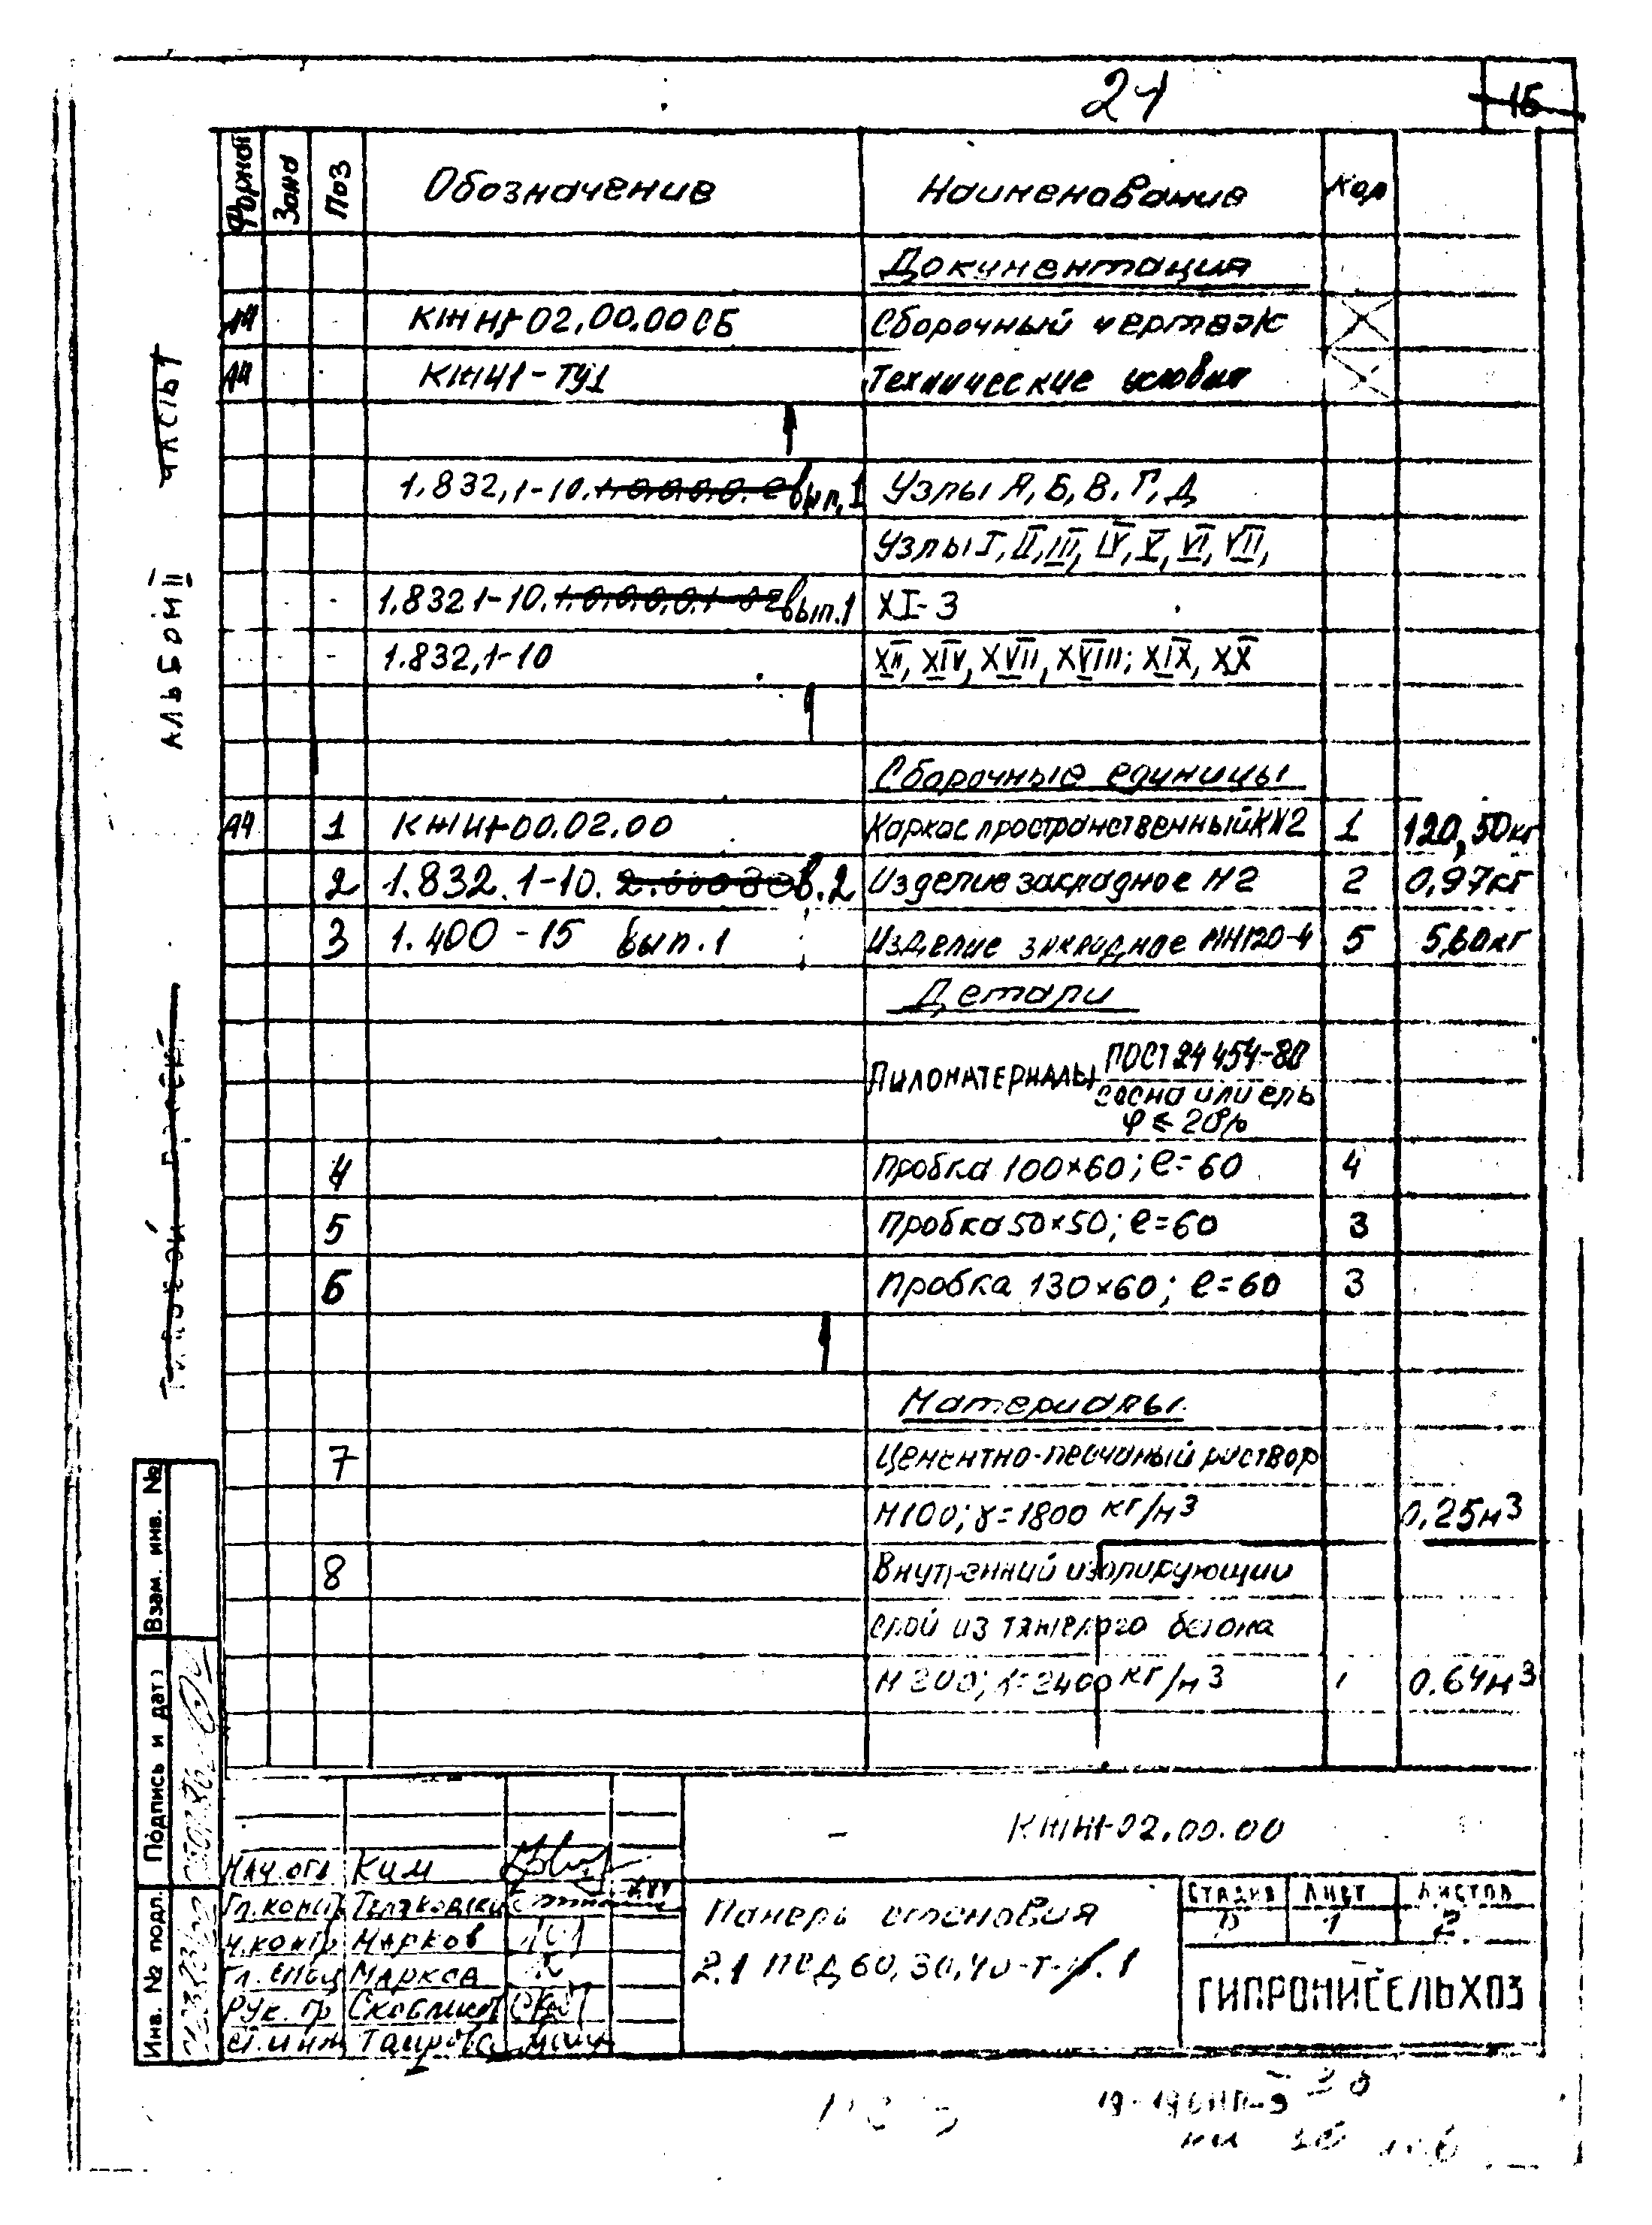 21
15
Формат Зона Поз Обозначение Наименование Кол
Документация
А4 КЖИ1-02.00.00СБ Сборочный чертеж
А4 КЖИ1-ТУ1 Технические условия
1.832,1-10. 1.0.0.0.0. вып.1 Узлы А, Б, В, Г, Д
Узлы I, II, III, IV, V, VI, VII,
1.832 1-10. 1.0.0.0.0.1-02 вып.1 XI-3
1.832,1-10 XII, XIV, XVII, XVIII; XIX, XX
Сборочные единицы
А4 1 КЖИ1-00.02.00 Каркас пространственный КП2 1 120,50кг
2 1.832.1-10. 2.00030 в.2 Изделие закладное М2 2 0,97кг
3 1.400-15 вып.1 Изделие закладное МН120-4 5 5,60кг
Детали
Пиломатериалы ГОСТ 24454-80
сосна или ель
φ ≤ 20%
4 Пробка 100×60; ℓ=60 4
5 Пробка 50×50; ℓ=60 3
6 Пробка 130×60; ℓ=60 3
Материалы
7 Цементно-песчаный раствор
М100; γ=1800 кг/м3 0,25м3
8 Внутренний изолирующий
слой из тяжелого бетона
М200; γ=2400 кг/м3 0.64м3
КЖИ1-02.00.00
Нач.отд Ким
Гл.констр
Н.контр Марков
Гл. спец Марков
Рук. гр
Ст.инж Таирова
Панель стеновая
2.1 ПСД 60.30.40-Т-п.1
Стадия Лист Листов
Р 1 2
ГИПРОНИСЕЛЬХОЗ
ЧАСТЬ 1
АЛЬБОМ II
Взам. инв. №
Подпись и дата
Инв. № подл.